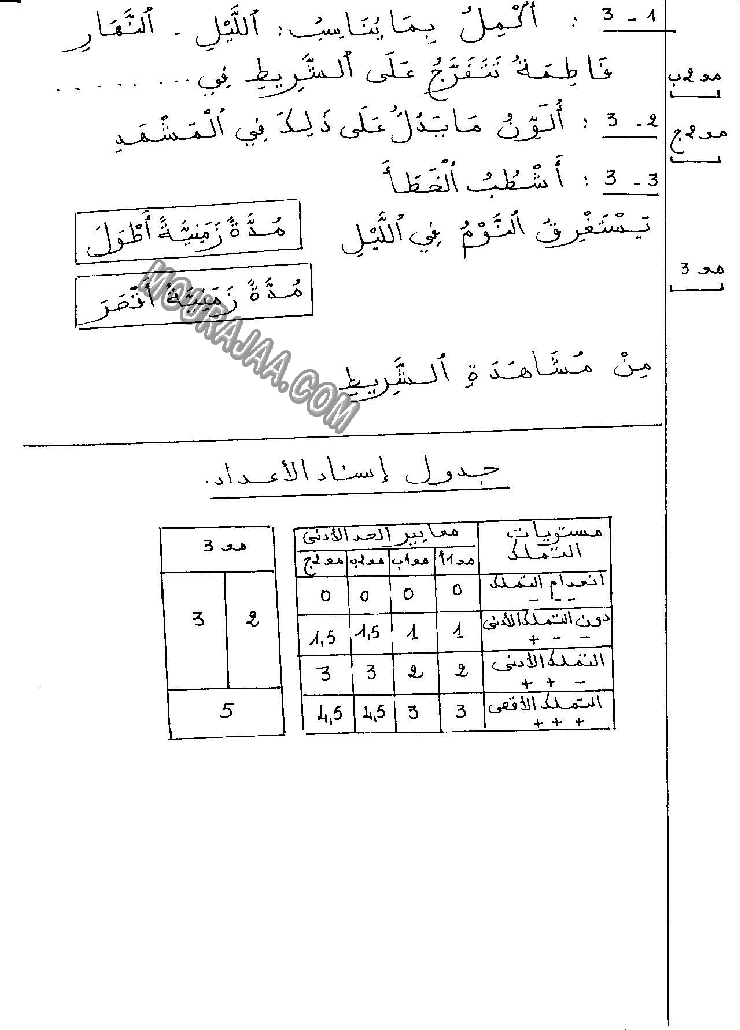 3 - 1 : أُكْمِلُ بِمَا يُنَاسِبُ: اَللَّيْلِ - اَلنَّهَارِ
فَاطِمَةُ تَتَفَرَّجُ عَلَى الشَّرِيطِ فِي..........
مع2ب
3 - 2 : أُلَوِّنُ مَا يَدُلُّ عَلَى ذَلِكَ فِي الْمَشْهَدِ
مع2ج
3 - 3 : أَشْطُبُ الْخَطَأَ
يَسْتَغْرِقُ النَّوْمُ فِي اللَّيْلِ
مُدَّةً زَمَنِيَّةً أَطْوَلَ
مُدَّةً زَمَنِيَّةً أَقْصَرَ
مع 3
مِنْ مُشَاهَدَةِ الشَّرِيطِ
MOURAJAA.COM
جدول إسناد الأعداد.
مستويات التملك
معايير الحد الأدنى
مع1أ مع1ب مع2ب مع2ج
انعدام التملك - - - 0 0 0 0
دون التملك الأدنى + - - 1 1 1,5 1,5
التملك الأدنى + + - 2 2 3 3
التملك الأقصى + + + 3 3 4,5 4,5
مع 3
3 2
5